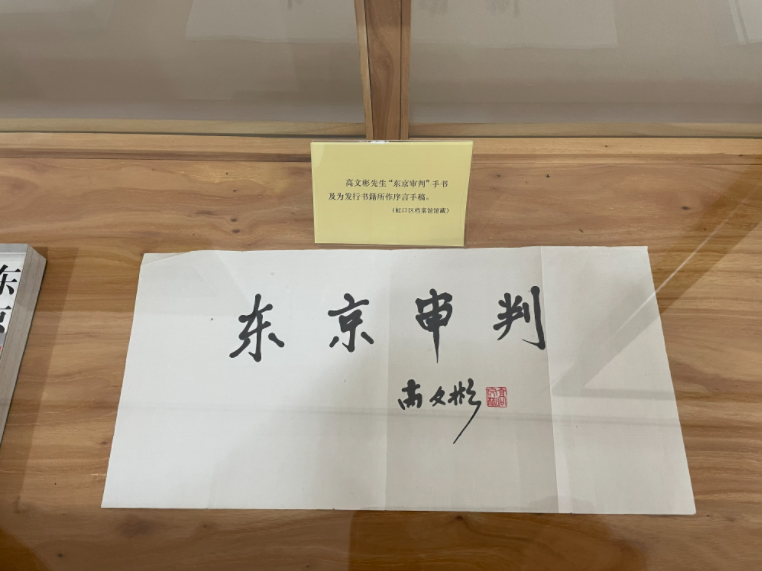 高文彬先生“东京审判”手书
及为发行书籍所作序言手稿。
（虹口区档案馆馆藏）
东京审判
高文彬
东
京